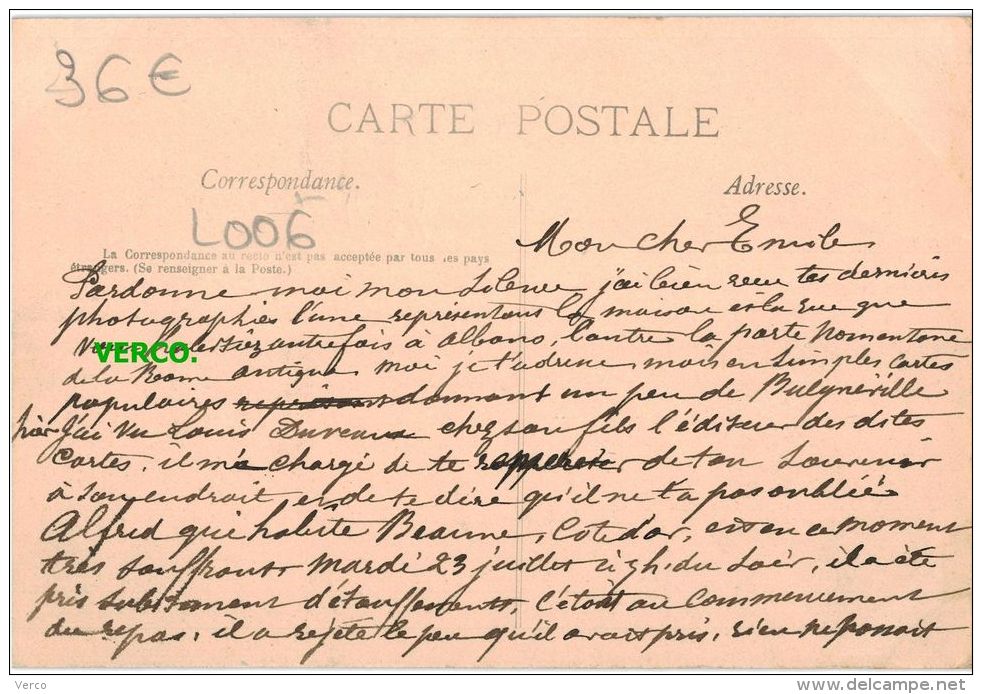 36€
CARTE POSTALE
Correspondance.
Adresse.
L006
Mon cher Emile
La Correspondance au recto n'est pas acceptée par tous les pays
étrangers. (Se renseigner à la Poste.)
Pardonne moi mon silence j'ai bien recu tes dernières
photographies l'une représentant la maison et la rue que
VERCO. autrefois à Albano, l'autre la porte Nomentane
de la Rome antique moi je t'adresse mais en simples cartes
populaires donnant un peu de Bulgnéville
hier j'ai vu Louis Duveaux chez son fils l'éditeur des dites
cartes. il m'a chargé de te de ton souvenir
à son endroit, en de te dire qu'il ne t'a pas oublié
Alfred qui habite Beaune, Cote d'or, est en ce moment
très souffrant Mardi 23 juillet à 7h. du soir, il a été
pris subitement d'étouffements, c'était au commencement
du repas, il a rejeté le peu qu'il avait pris, rien ne
Verco
www.delcampe.net